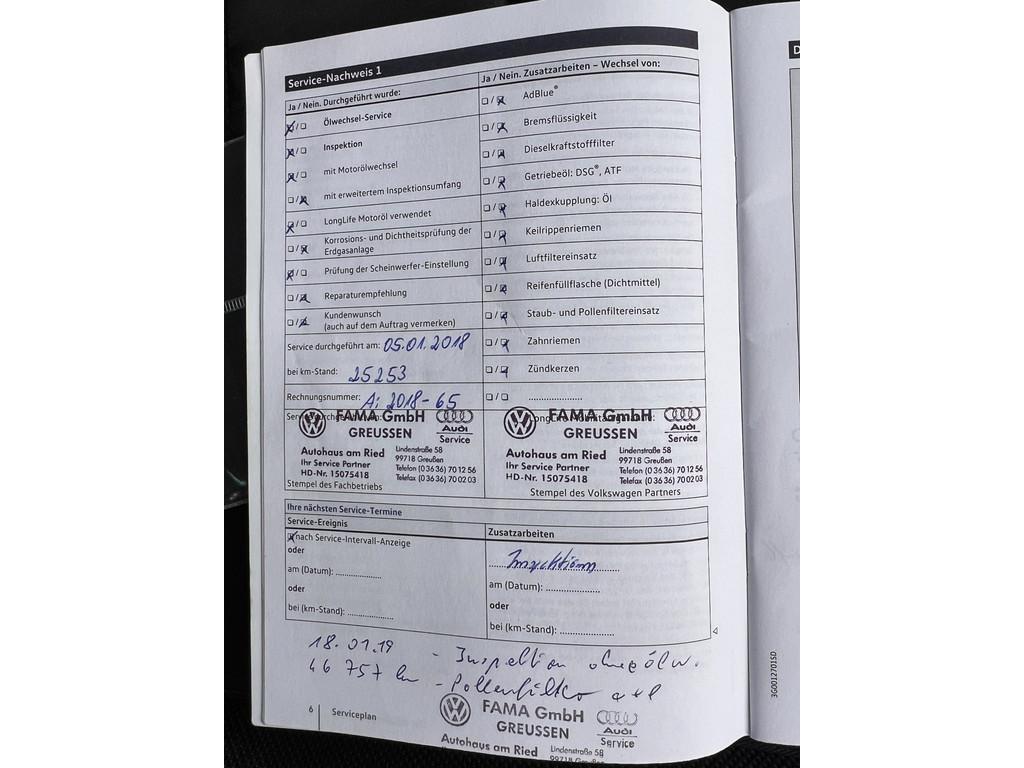 Service-Nachweis 1
Ja / Nein. Durchgeführt wurde:
Ölwechsel-Service
Inspektion
mit Motorölwechsel
mit erweitertem Inspektionsumfang
LongLife Motoröl verwendet
Korrosions- und Dichtheitsprüfung der
Erdgasanlage
Prüfung der Scheinwerfer-Einstellung
Reparaturempfehlung
Kundenwunsch
(auch auf dem Auftrag vermerken)
Service durchgeführt am: 05.01.2018
bei km-Stand: 25253
Rechnungsnummer: Ai 2018-65
Ja / Nein. Zusatzarbeiten – Wechsel von:
AdBlue®
Bremsflüssigkeit
Dieselkraftstofffilter
Getriebeöl: DSG®, ATF
Haldexkupplung: Öl
Keilrippenriemen
Luftfiltereinsatz
Reifenfüllflasche (Dichtmittel)
Staub- und Pollenfiltereinsatz
Zahnriemen
Zündkerzen
FAMA GmbH
GREUSSEN
Audi
Service
Autohaus am Ried
Ihr Service Partner
HD-Nr. 15075418
Lindenstraße 58
99718 Greußen
Telefon (0 36 36) 70 12 56
Telefax (0 36 36) 70 02 03
Stempel des Fachbetriebs
FAMA GmbH
GREUSSEN
Audi
Service
Autohaus am Ried
Ihr Service Partner
HD-Nr. 15075418
Lindenstraße 58
99718 Greußen
Telefon (0 36 36) 70 12 56
Telefax (0 36 36) 70 02 03
Stempel des Volkswagen Partners
Ihre nächsten Service-Termine
Service-Ereignis
nach Service-Intervall-Anzeige
oder
am (Datum): ...............
oder
bei (km-Stand): ...............
Zusatzarbeiten
Inspektion
am (Datum): ..................
oder
bei (km-Stand): ..................
18.01.19 - Inspektion ohne ölw.
46 757 km - Pollenfilter
6 Serviceplan
FAMA GmbH
GREUSSEN
Audi
Service
Autohaus am Ried
Lindenstraße 58
99718 Greußen
3G0012701SD
D